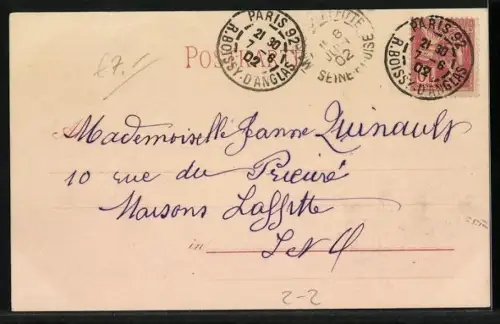 £7.-
Post
PARIS 92
21 30
7 - 6
02
R. BOISSY-D'ANGLAS
FITTE
8
02
SEINE OISE
PARIS 92
21 30
7 - 6
02
R. BOISSY-D'ANGLAS
Mademoiselle Jeanne Quinault
10 rue du Prieuré
Maisons Laffitte
in
S et O
2-2